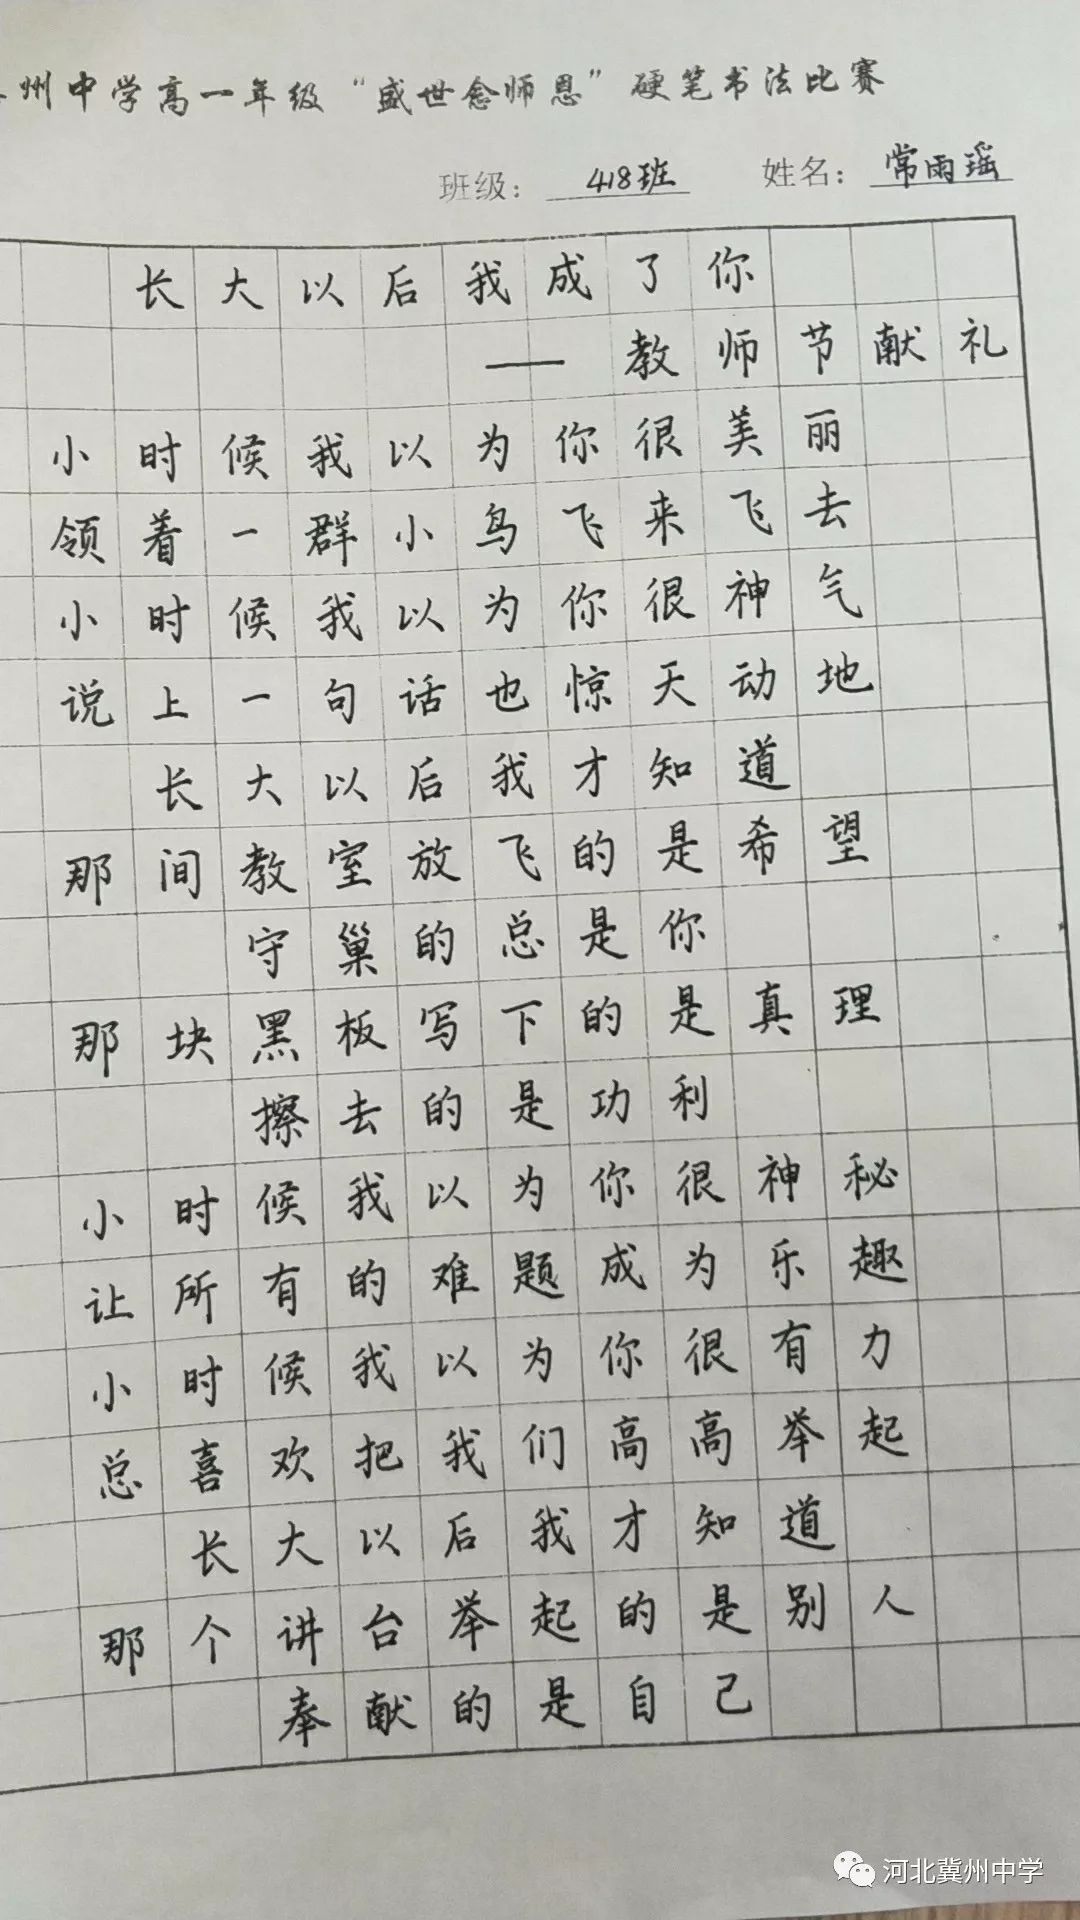 州中学高一年级“盛世念师恩”硬笔书法比赛
班级：418班 姓名：常雨瑶
长大以后我成了你
——教师节献礼
小时候我以为你很美丽
领着一群小鸟飞来飞去
小时候我以为你很神气
说上一句话也惊天动地
长大以后我才知道
那间教室放飞的是希望
守巢的总是你
那块黑板写下的是真理
擦去的是功利
小时候我以为你很神秘
让所有的难题成为乐趣
小时候我以为你很有力
总喜欢把我们高高举起
长大以后我才知道
那个讲台举起的是别人
奉献的是自己
河北冀州中学